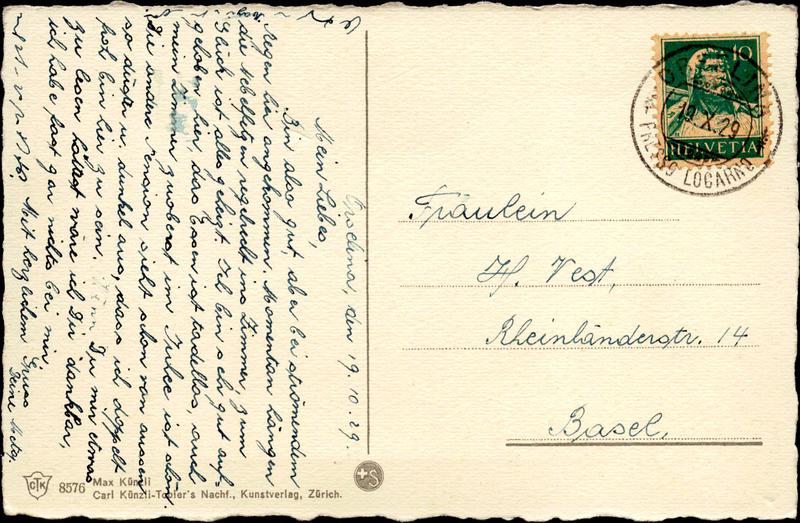 Orselina, den 19.10.29.
Mein Liebes,
Bin also gut, aber bei strömendem
Regen hier angekommen. Momentan hängen
die Nebelfetzen regelrecht ins Zimmer, zum
Glück ist alles geheizt. Ich bin sehr gut auf-
gehoben hier, das Essen ist tadellos, auch
mein Zimmer zuoberst im Julce ist schön.
Die andere Pension sieht schon von aussen
so düster u. dunkel aus, dass ich doppelt
froh bin hier zu sein. Wenn Du mir etwas
zu lesen hättest wäre ich Dir dankbar,
ich habe fast gar nichts bei mir.
Mit herzlichem Gruss
Deine Meta.
10
HELVETIA
ORSELINA
19.X.29
PRESSO LOCARNO
Fräulein
H. Vest,
Rheinländerstr. 14
Basel,
CTK 8576 Max Künzli
Carl Künzli-Tobler's Nachf., Kunstverlag, Zürich.
+S